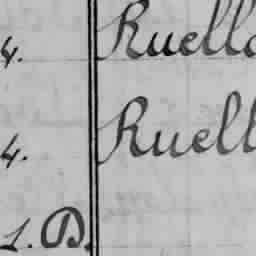 4. Ruella
4. Ruell
L. D.